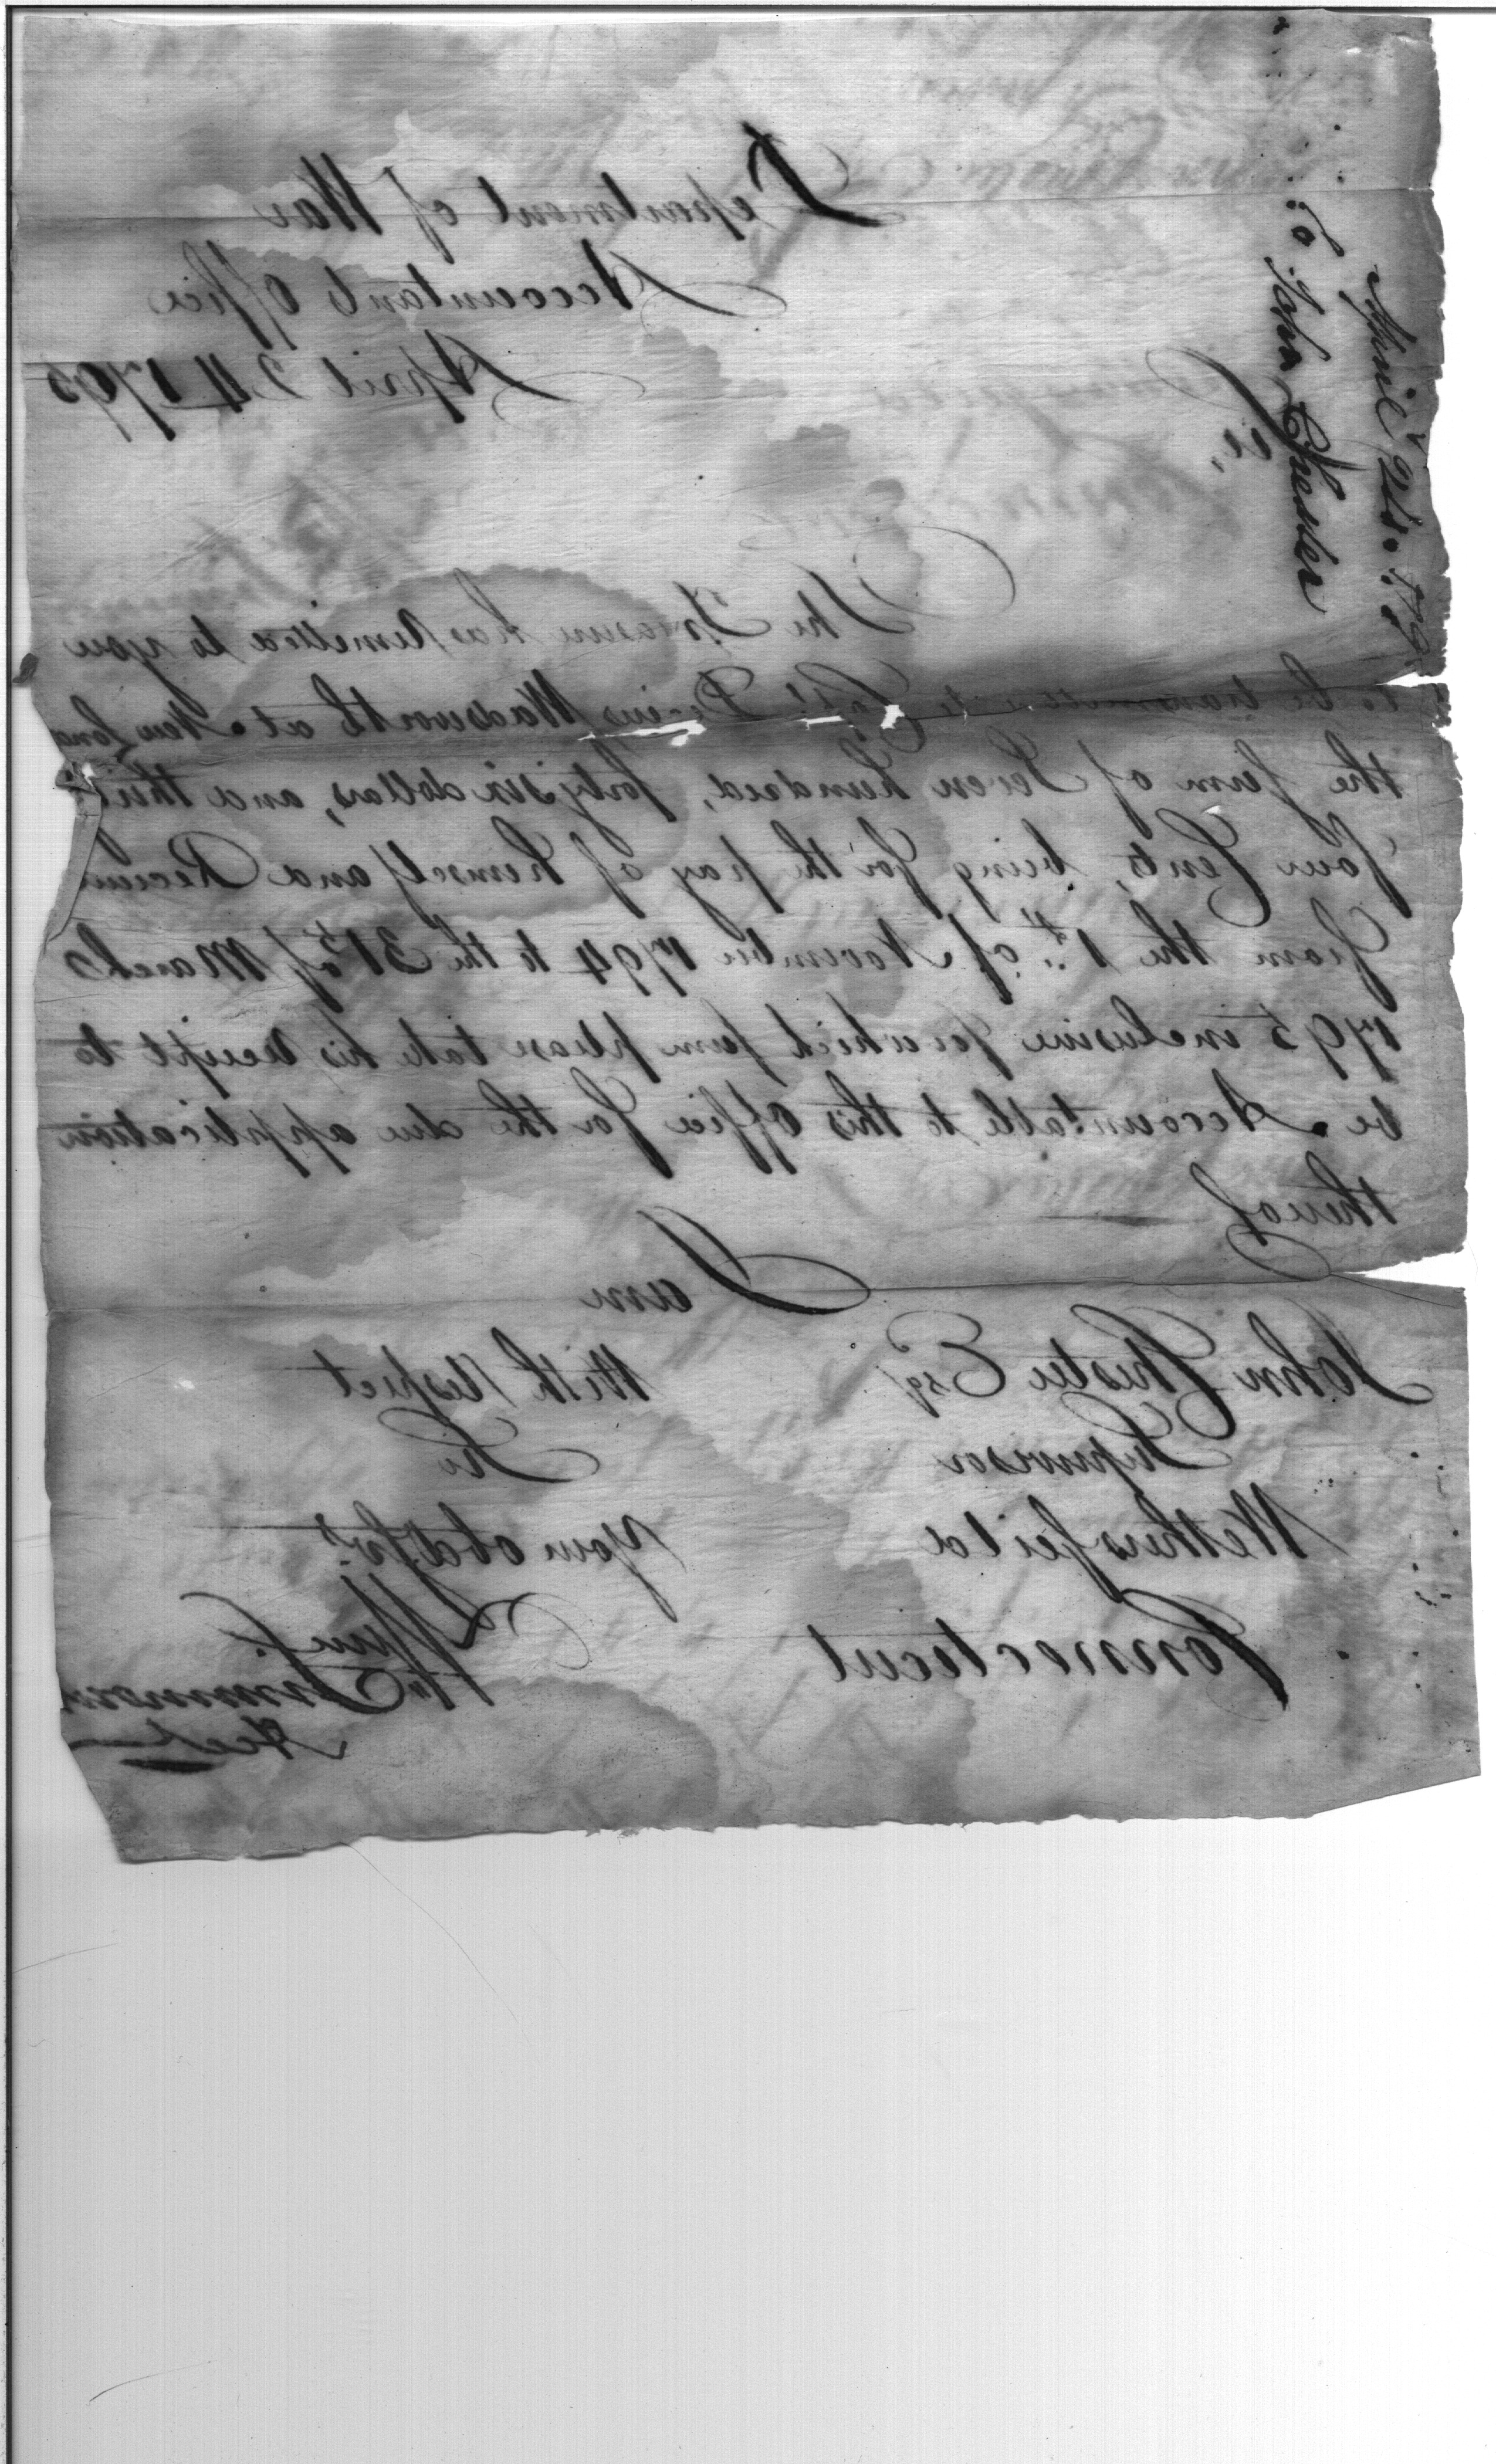 To John Chester
April 24. 179
Department of War
Accountants Office
April 24 1795
Sir,
The Treasurer has Remitted to you
to be transmitted to Capt. Decius Wadsworth at New Lond
the sum of Seven hundred, forty six dollars, and thirt
four Cents, being for the pay of himself and Recruits
from the 1st. of November 1794 to the 31st of March
1795 inclusive for which sum please take his receipt to
be Accountable to this Office for the due application
thereof
I am
With Respect
Sir
Your obed Servt.
Wm Simmons
Acct
John Chester Esqr
Supervisor
Wethersfeild
Connecticut